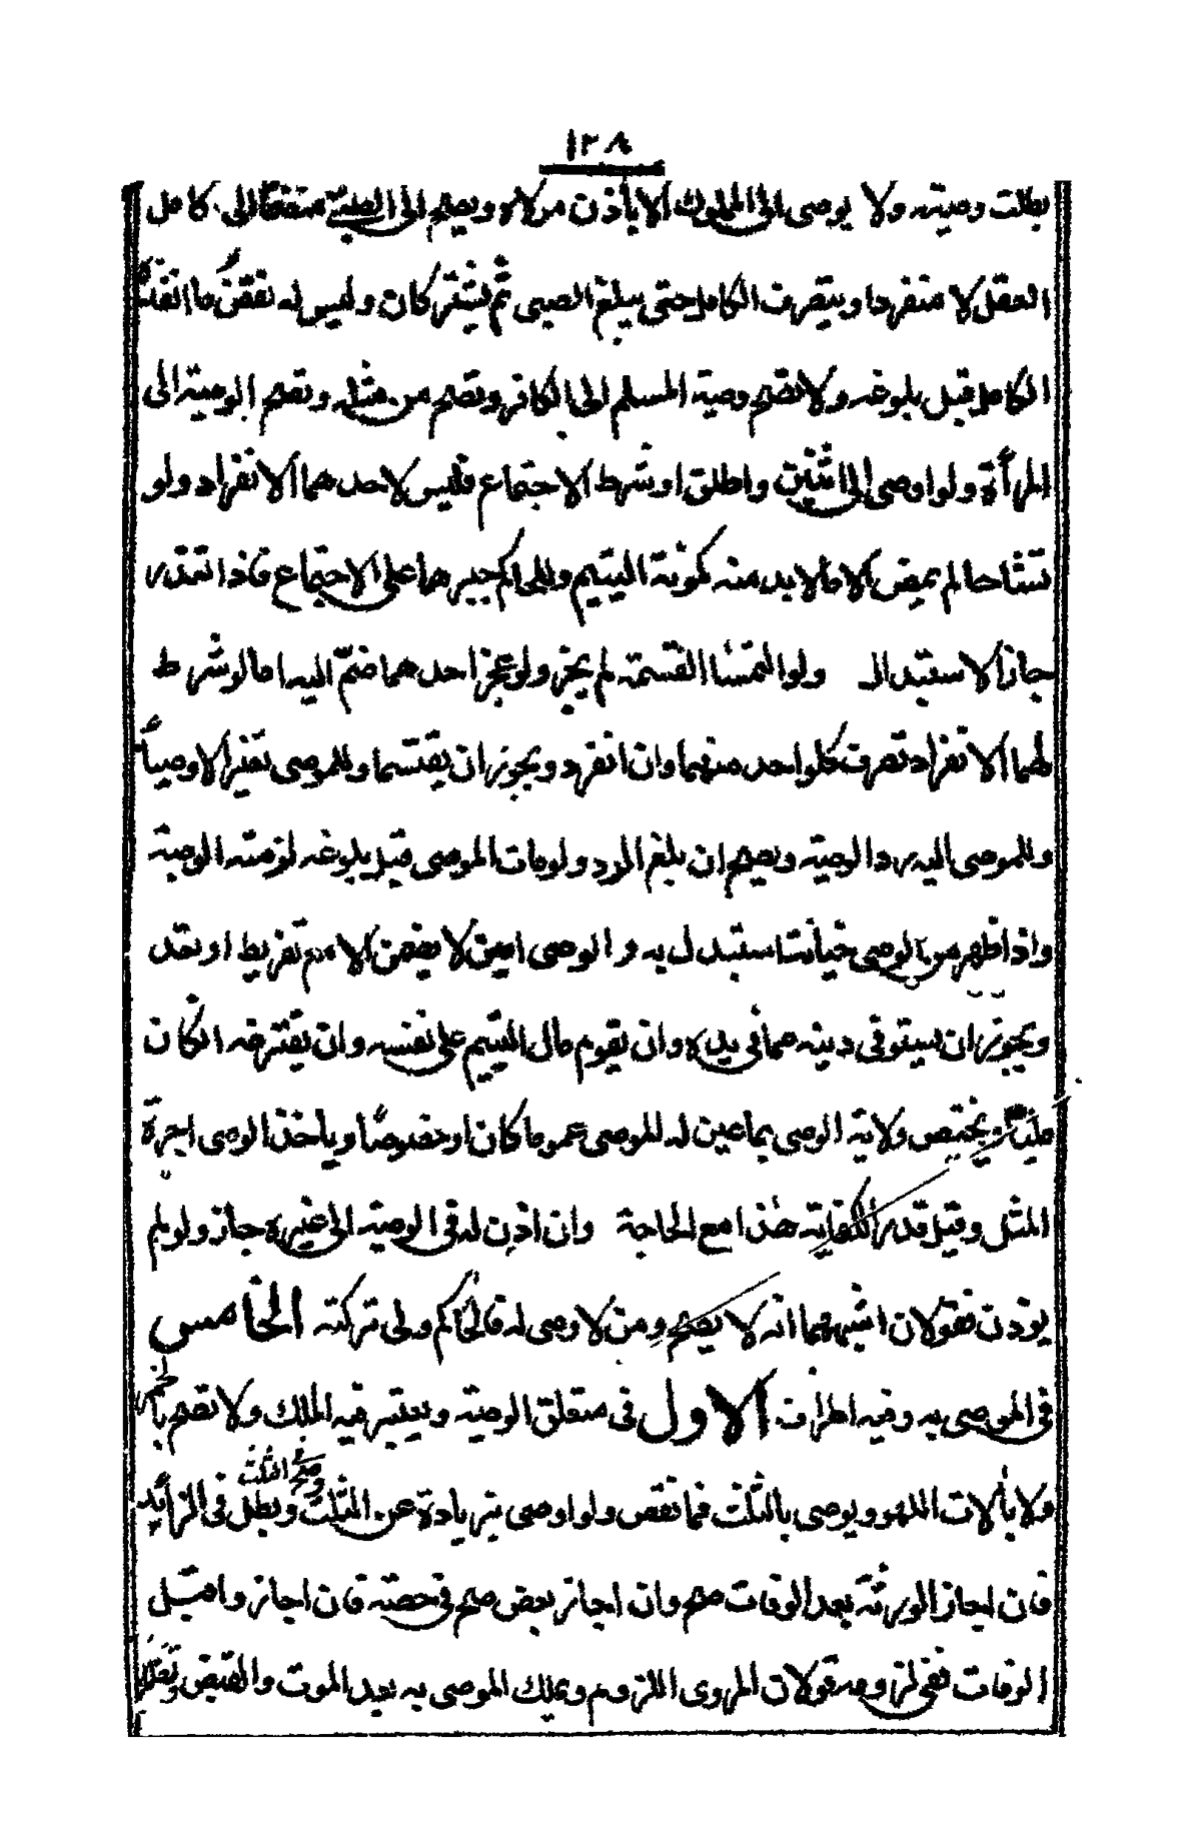 ١٣٨
بطلت وصيته ولا يوصى الى المملوك الا بأذن مولاه ويصح الى الصبى منضما الى كامل
العقل لا منفردا ويتصرف الكامل حتى يبلغ الصبى ثم يشتركان وليس له نقض ما انفذه
الكامل قبل بلوغه ولا تصح وصية المسلم الى الكافر وتصح من مثله وتصح الوصية الى
المرأة ولو اوصى الى اثنين واطلق او شرط الاجتماع فليس لاحدهما الانفراد ولو
تشاحا لم يمض الا ما لا بد منه كمونة اليتيم وللحاكم جبرهما على الاجتماع فاذا تعذر
جاز الاستبدال ولو التمسا القسمة لم يجز ولو عجز احدهما ضم اليه اما لو شرط
لهما الانفراد تصرف كل واحد منهما وان انفرد ويجوز ان يقتسما وللموصى تغيير الاوصياء
وللموصى اليه رد الوصية ويصح ان بلغ الرد ولو مات الموصى قبل بلوغه لزمته الوصية
واذا ظهر من الوصى خيانة استبدل به والوصى امين لا يضمن الا مع تفريط او تعد
ويجوز ان يستوفى دينه مما فى يده وان يقوم مال اليتيم على نفسه وان يقترضه اذا كان
مليا ويختص ولاية الوصى بما عين له الموصى عموما كان او خصوصا وياخذ الوصى اجرة
المثل وقيل قدر الكفاية هذا مع الحاجة وان اذن له فى الوصية الى غيره جاز ولو لم
يوذن فقولان اشبههما انه لا يصح ومن لا وصى له فالحاكم ولى تركته الخامس
فى الموصى به وفيه اطراف الاول فى متعلق الوصية ويعتبر فيه الملك ولا تصح بالخمر
ولا بآلات اللهو ويوصى بالثلث فما نقص ولو اوصى بزيادة عن الثلث وبطل فى الزائد
وصح الثلث
فان اجاز الورثة بعد الوفات صح وان اجاز بعض صح فى حصته فان اجازوا قبل
الوفات ففى لزومه قولان المروى اللزوم ويملك الموصى به بعد الموت والقبض